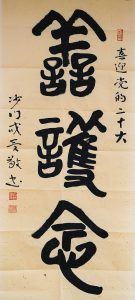 喜迎党的二十大
善護念
沙门戒贤敬书